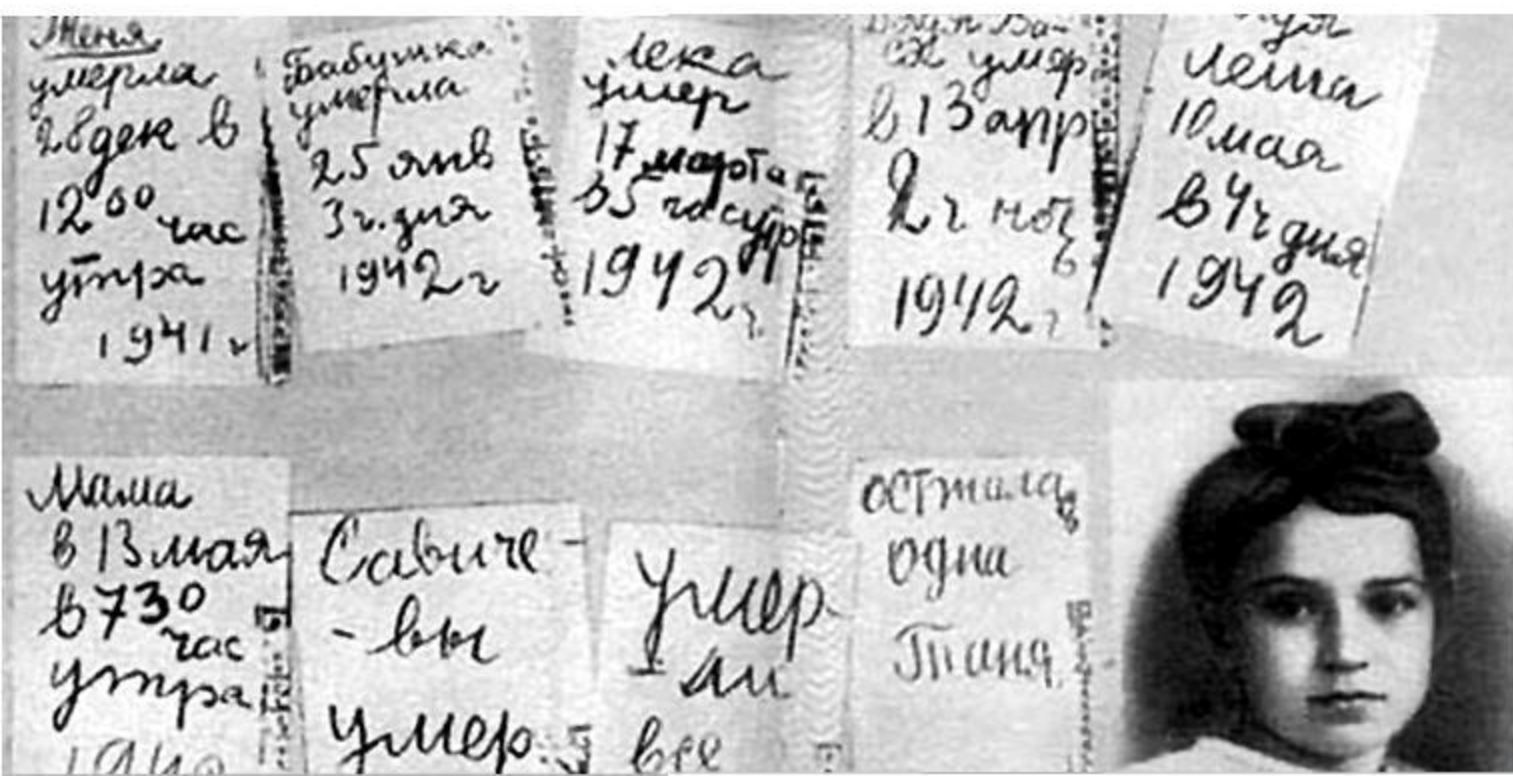 Женя
умерла
28 дек в
12 00 час
утра
1941 г
Бабушка
умерла
25 янв
3 ч. дня
1942 г
Лека
умер
17 марта
в 5 час утр
1942 г
Дядя Ва-
ся умер
в 13 апр
2 ч ноч
ь
1942 г
Леша
10 мая
в 4 ч дня
1942
Мама
в 13 мая
в 7 30
час
утра
1942
Савиче-
-вы
умер
Умер-
-ли
все
осталась
одна
Таня